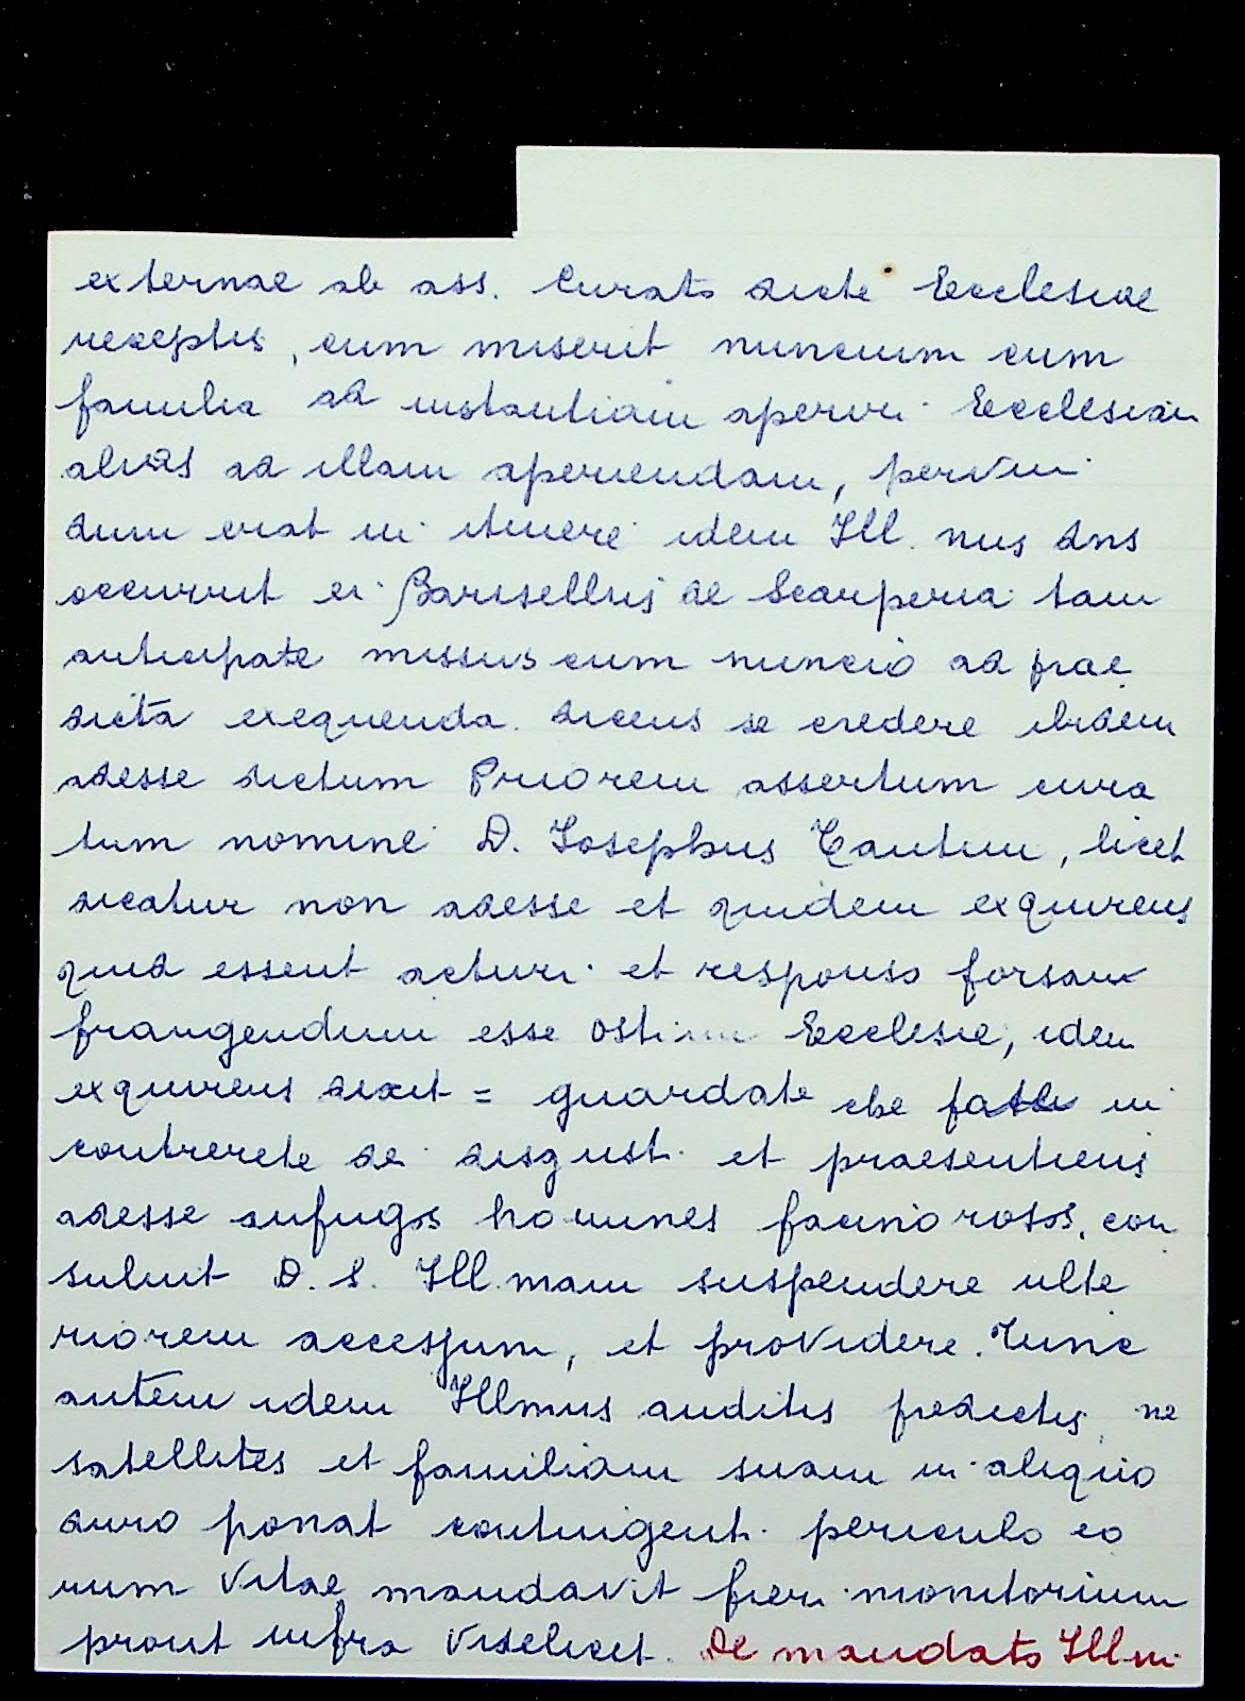 externae ab ass. Curato dicte Ecclesiae
receptis, cum miserit nuncium cum
familia ad instantiam aperiri Ecclesiam
alias ad illam aperiendam, pervin
dum erat in itinere idem Ill. nus dns
occurrit ei Bariselluj de Scarperia tam
anticipate missus cum nuncio ad prae
dicta exequenda. dicens se credere ibidem
adesse dictum Priorem assertum cura
tum nomine D. Iosephus Tantini, licet
dicatur non adesse et quidem exquirens
quid essent acturi et responso forsan
frangendum esse ostium Ecclesie, idem
exquirens dixit = guardate che fatte in
contrerete de disgusti et praesentiens
adesse aufugos homines facinorosos, con
suluit D. S. Ill. mam suspendere ulte
riorem accessum, et providere. Tunc
autem idem Illmus auditis predictis, ne
satellites et familiam suam in aliquo
duro ponat contingenti periculo eo
rum vitae mandavit fieri monitorium
prout infra videlicet. De mandato Illmi